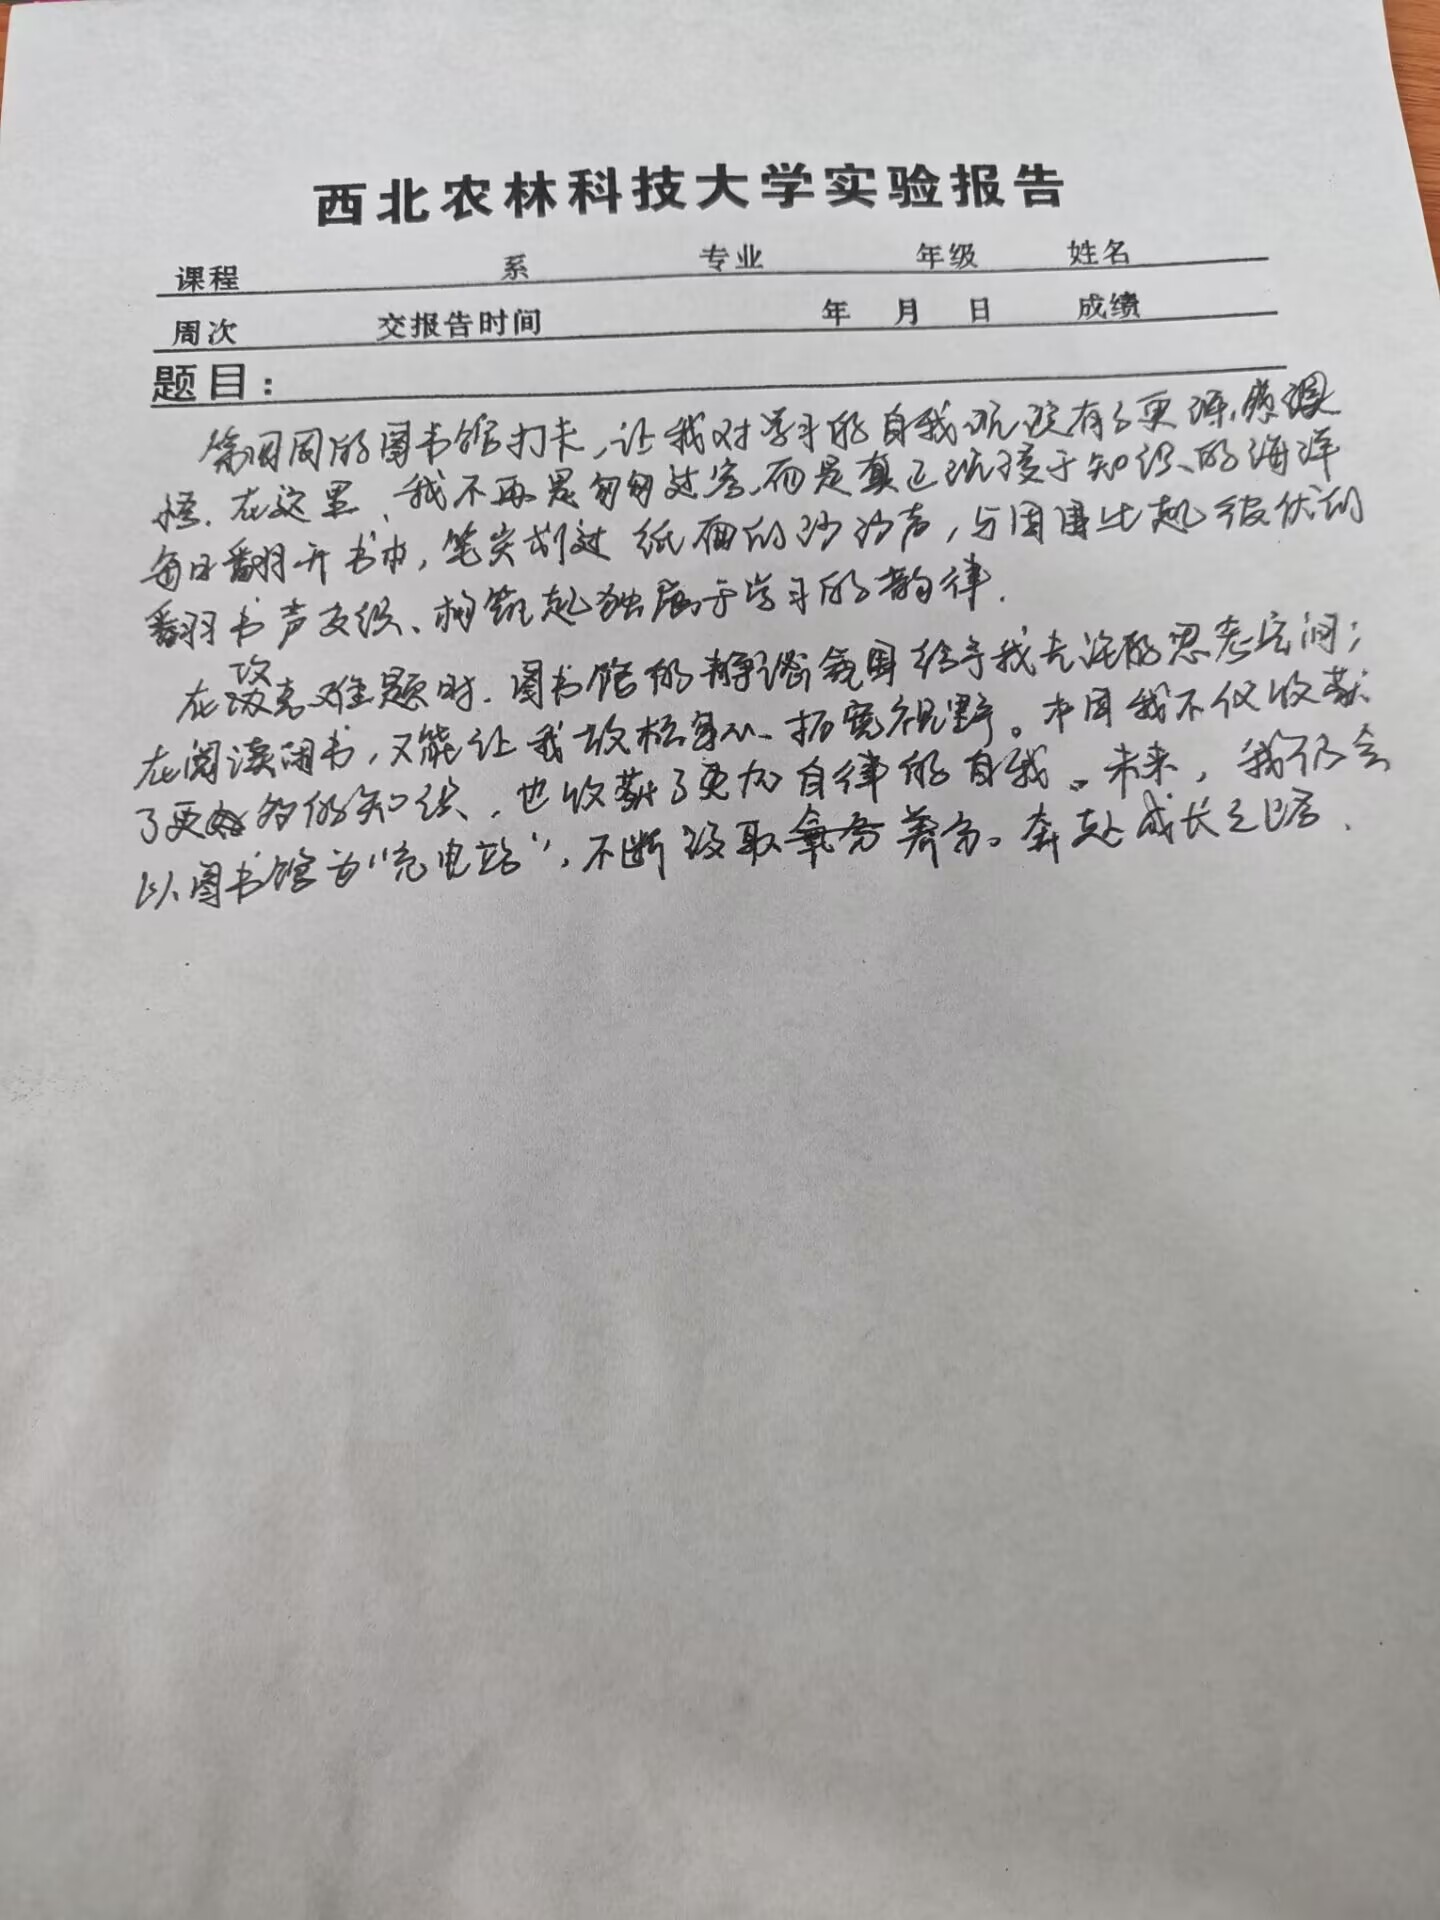 西北农林科技大学实验报告
课程 系 专业 年级 姓名
周次 交报告时间 年 月 日 成绩
题目：
第四周的图书馆打卡，让我对学习的自我沉淀有了更深
悟. 在这里, 我不再是匆匆过客, 而是真正沉浸于知识的海洋
每日翻开书本, 笔尖划过纸面的沙沙声, 与周围此起彼伏的
翻书声交织、构筑起独属于学习的韵律.
在攻克难题时. 图书馆的静谧氛围给予我充沛的思考空间;
在阅读闲书, 又能让我放松身心、拓宽视野。本周我不仅收获
了更多的知识, 也收获了更加自律的自我。未来, 我仍会
以图书馆为"充电站", 不断汲取养分。奔赴成长之路.